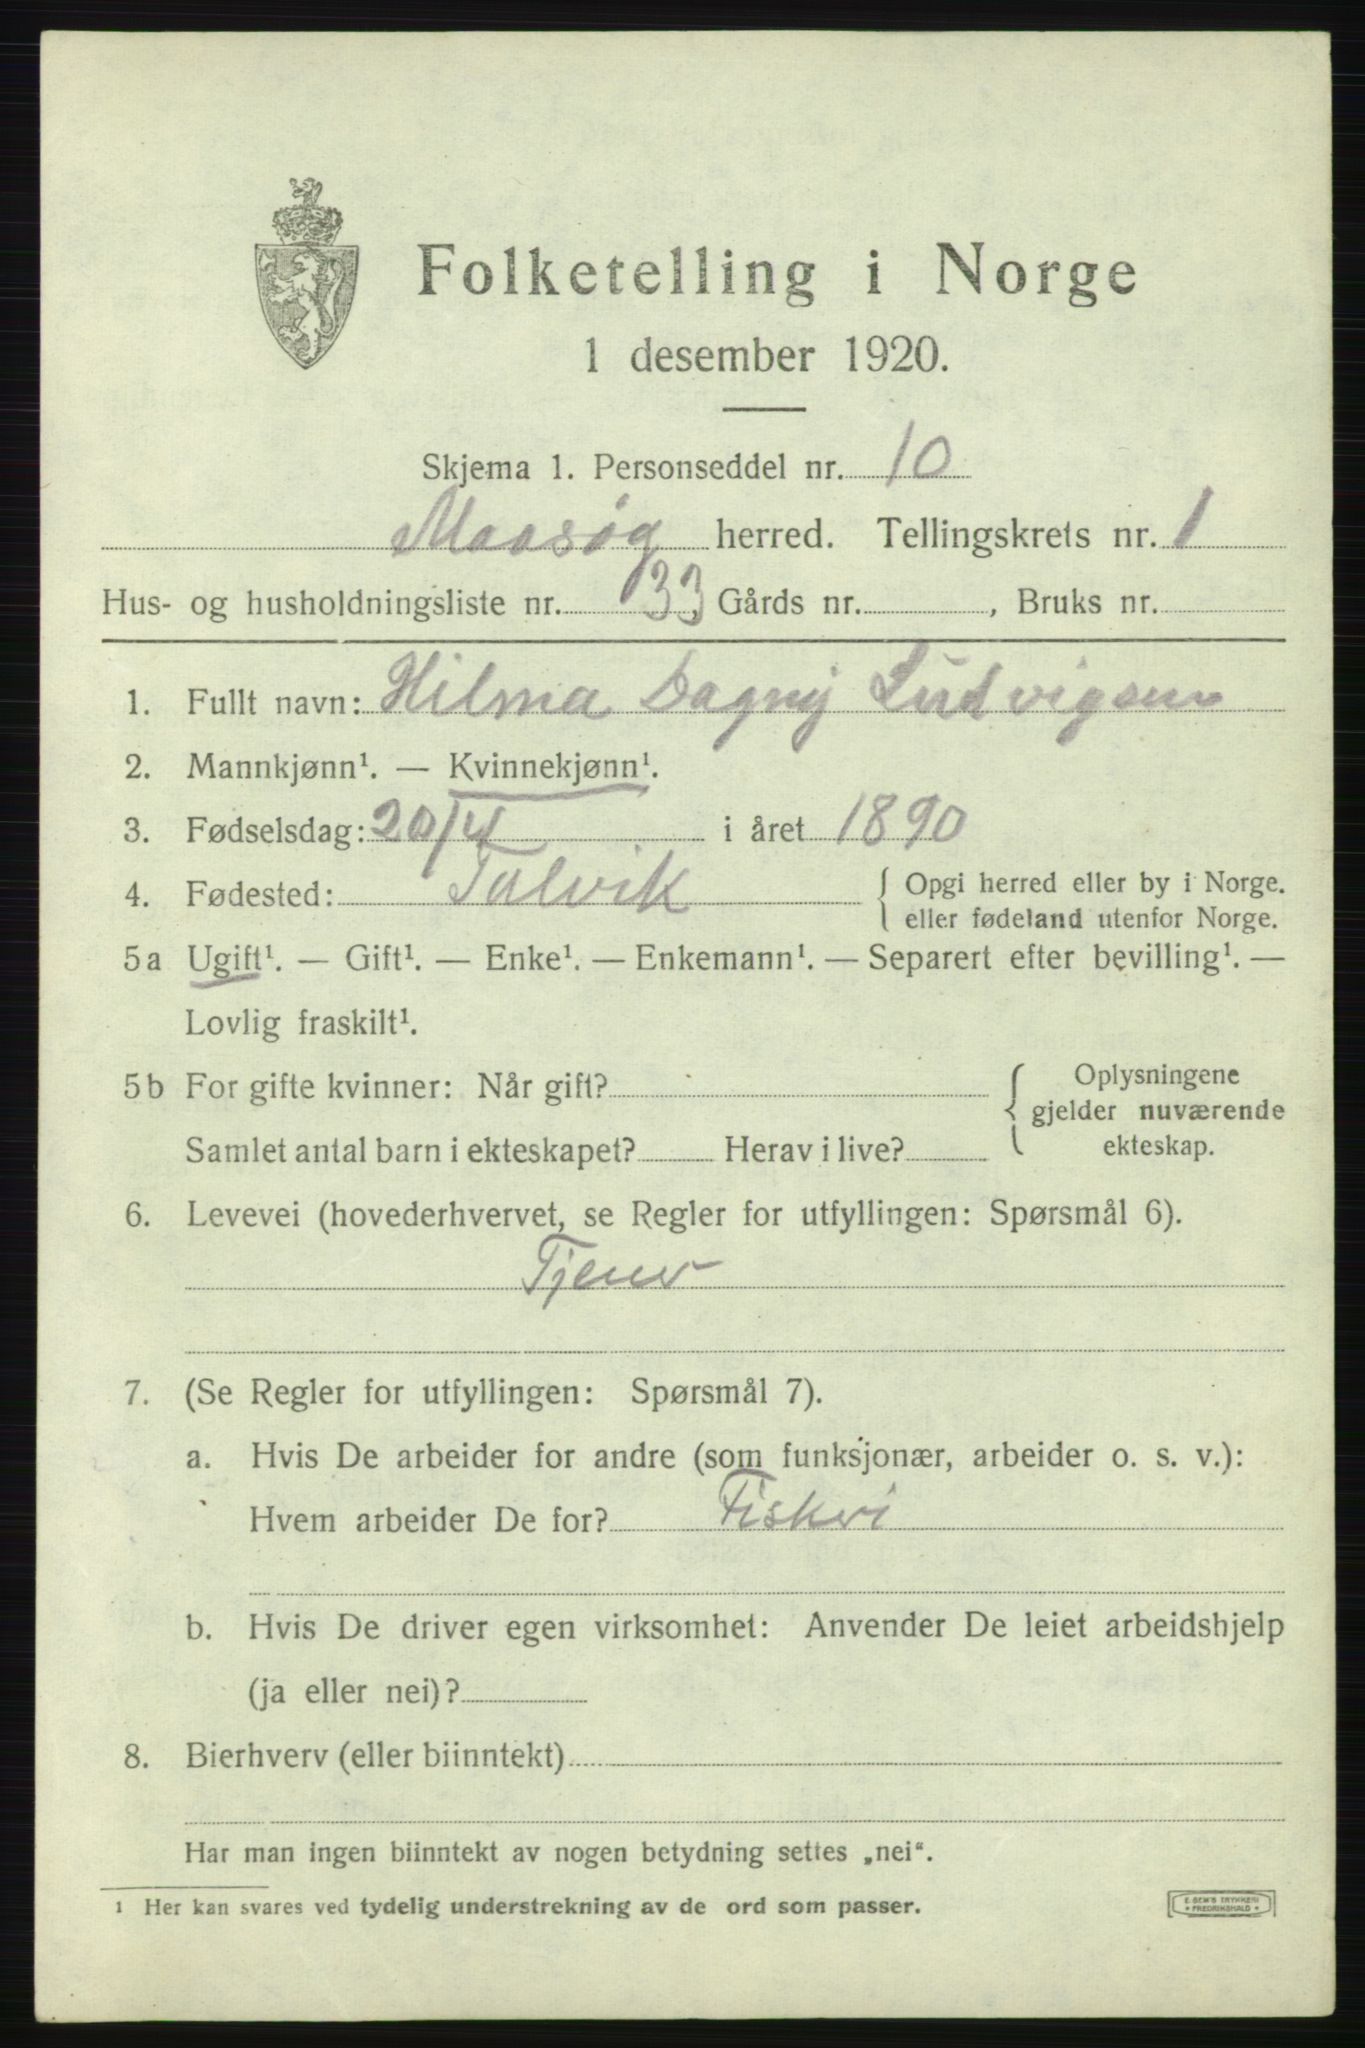 Folketelling i Norge
1 desember 1920.
Skjema 1. Personseddel nr. 10
Maasøg herred. Tellingskrets nr. 1
Hus- og husholdningsliste nr. 33, Gårds nr. , Bruks nr.
1. Fullt navn: Hilma Dagny Ludvigsen
2. Mannkjønn¹. — Kvinnekjønn¹.
3. Fødselsdag: 20/4 i året 1890
4. Fødested: Talvik { Opgi herred eller by i Norge.
eller fødeland utenfor Norge.
5a Ugift¹. — Gift¹. — Enke¹. — Enkemann¹. — Separert efter bevilling¹. —
Lovlig fraskilt¹.
5b For gifte kvinner: Når gift? { Oplysningene
gjelder nuværende
Samlet antal barn i ekteskapet? Herav i live? ekteskap.
6. Levevei (hovederhvervet, se Regler for utfyllingen: Spørsmål 6).
Tjener
7. (Se Regler for utfyllingen: Spørsmål 7).
a. Hvis De arbeider for andre (som funksjonær, arbeider o. s. v.):
Hvem arbeider De for? Fiskeri
b. Hvis De driver egen virksomhet: Anvender De leiet arbeidshjelp
(ja eller nei)?
8. Bierhverv (eller biinntekt)
Har man ingen biinntekt av nogen betydning settes „nei“.
¹ Her kan svares ved tydelig understrekning av de ord som passer.
E. SEM'S TRYKKERI
* FREDRIKSHALD *